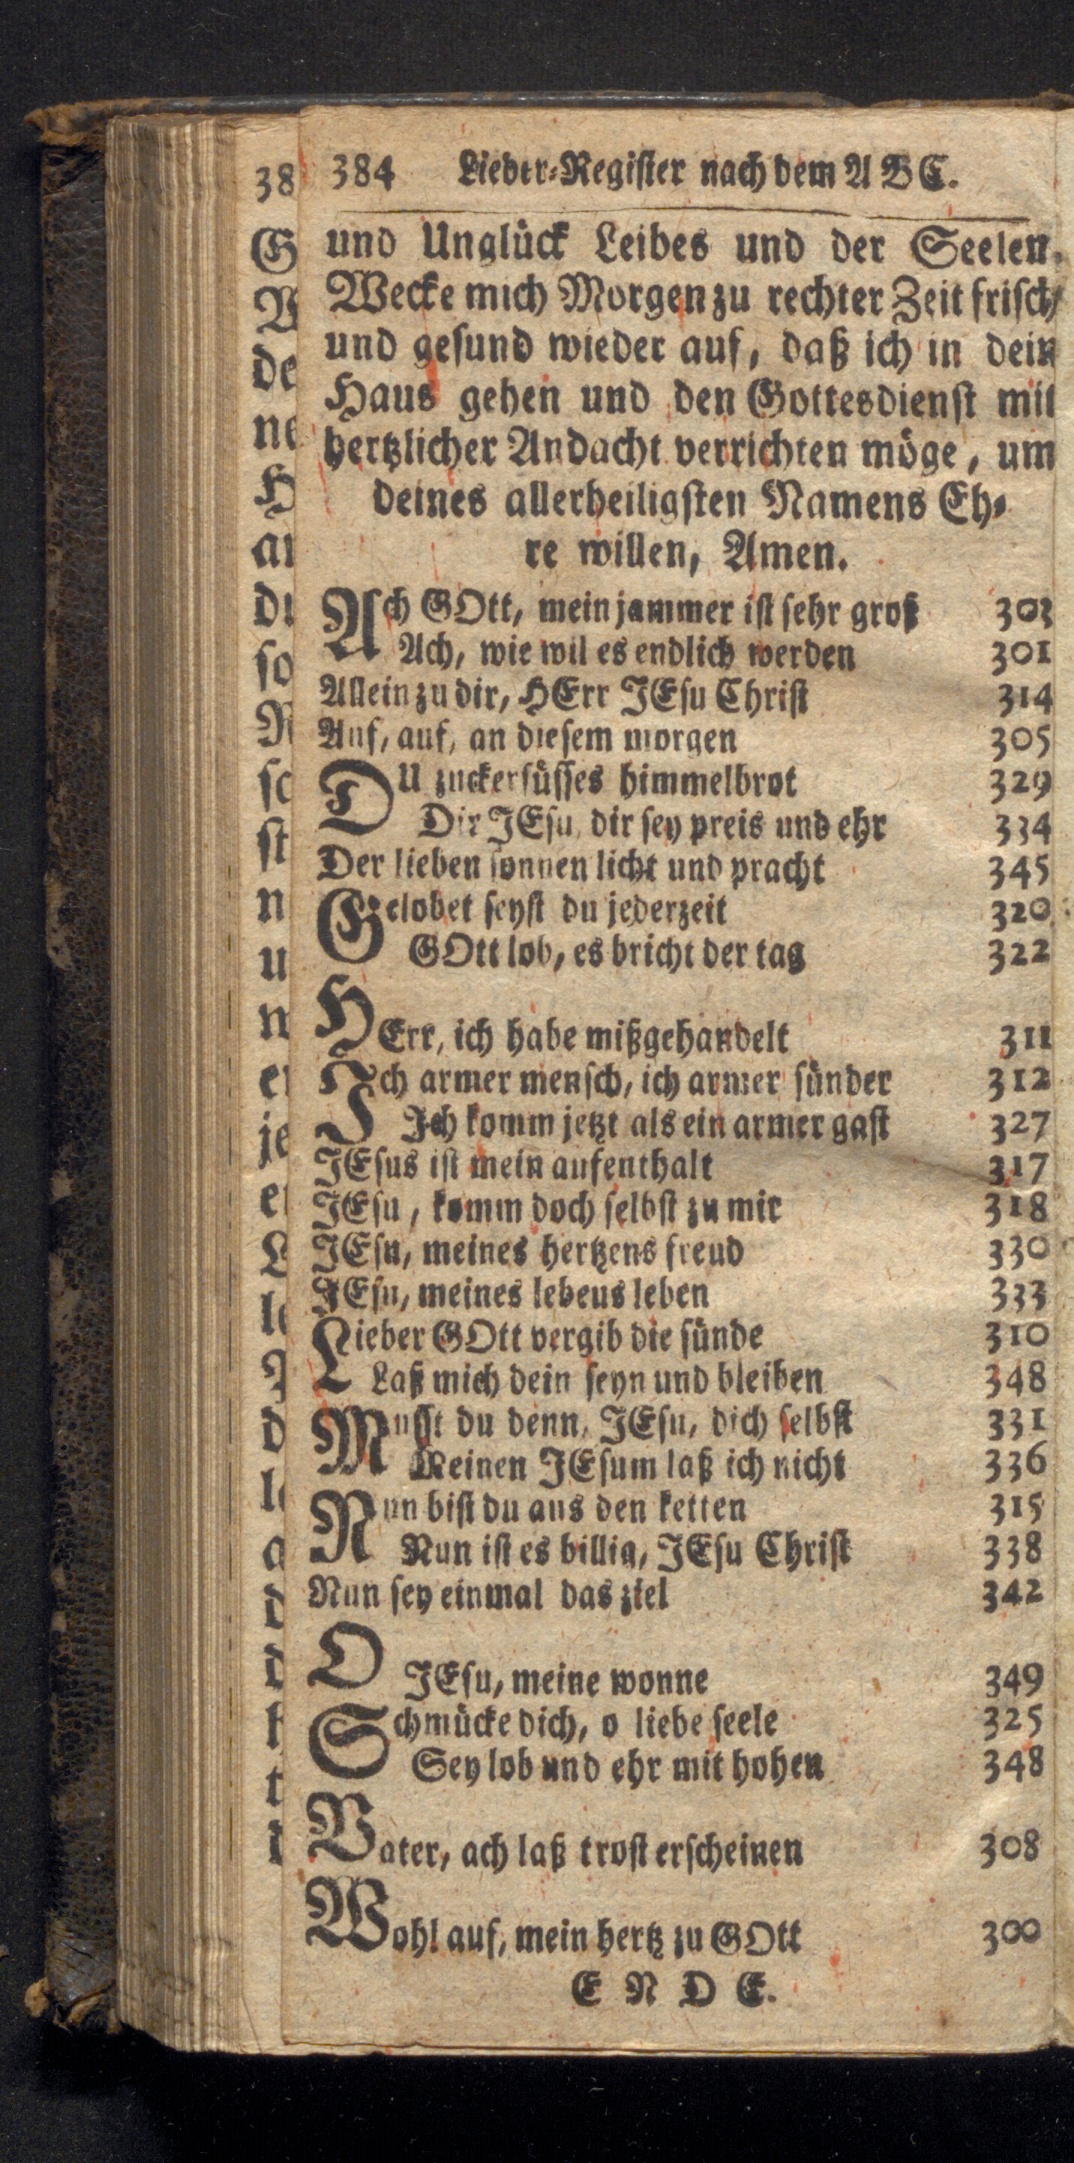 384 Lieder-Register nach dem A B C.
und Unglück Leibes und der Seelen.
Wecke mich Morgen zu rechter Zeit frisch
und gesund wieder auf, daß ich in dein
Haus gehen und den Gottesdienst mit
hertzlicher Andacht verrichten möge, um
deines allerheiligsten Namens Eh-
re willen, Amen.
Ach GOtt, mein jammer ist sehr groß 303
Ach, wie wil es endlich werden 301
Allein zu dir, HErr JEsu Christ 314
Auf, auf, an diesem morgen 305
DU zuckersüsses himmelbrot 329
Dir JEsu, dir sey preis und ehr 334
Der lieben sonnen licht und pracht 345
Gelobet seyst du jederzeit 320
GOtt lob, es bricht der tag 322
HErr, ich habe mißgehandelt 311
Ich armer mensch, ich armer sünder 312
Ich komm jetzt als ein armer gast 327
JEsus ist mein aufenthalt 317
JEsu, komm doch selbst zu mir 318
JEsu, meines hertzens freud 330
JEsu, meines lebens leben 333
Lieber GOtt vergib die sünde 310
Laß mich dein seyn und bleiben 348
Musst du denn, JEsu, dich selbst 331
Meinen JEsum laß ich nicht 336
Nun bist du aus den ketten 315
Nun ist es billig, JEsu Christ 338
Nun sey einmal das ziel 342
O JEsu, meine wonne 349
Schmücke dich, o liebe seele 325
Sey lob und ehr mit hohen 348
Vater, ach laß trost erscheinen 308
Wohl auf, mein hertz zu GOtt 300
E N D E.